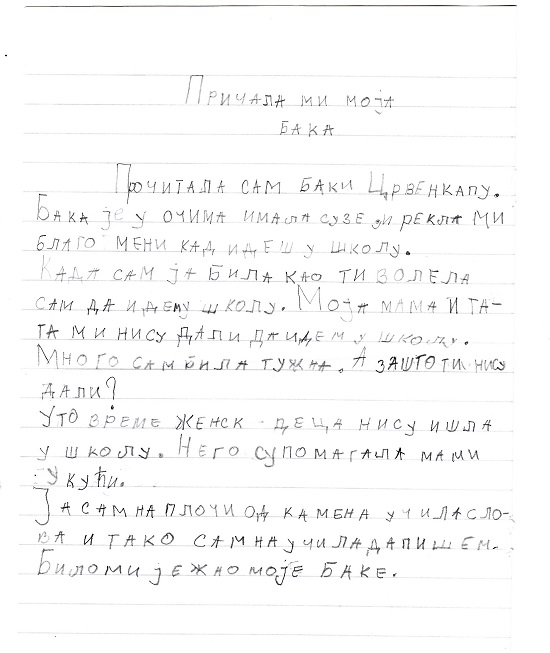 Причала ми моја
бака
Прочитала сам баки Црвенкапу.
Бака је у очима имала сузе, и рекла ми
благо мени кад идеш у школу.
Када сам ја била као ти волела
сам да идем у школу. Моја мама и та-
та ми нису дали да идем у школу.
Много сам била тужна. А зашто ти нису
дали?
У то време женск деца нису ишла
у школу. Него су помагала мами
у кући.
Ја сам на плочи од камена учила сло-
ва и тако сам научила да пишем.
Било ми је жао моје баке.